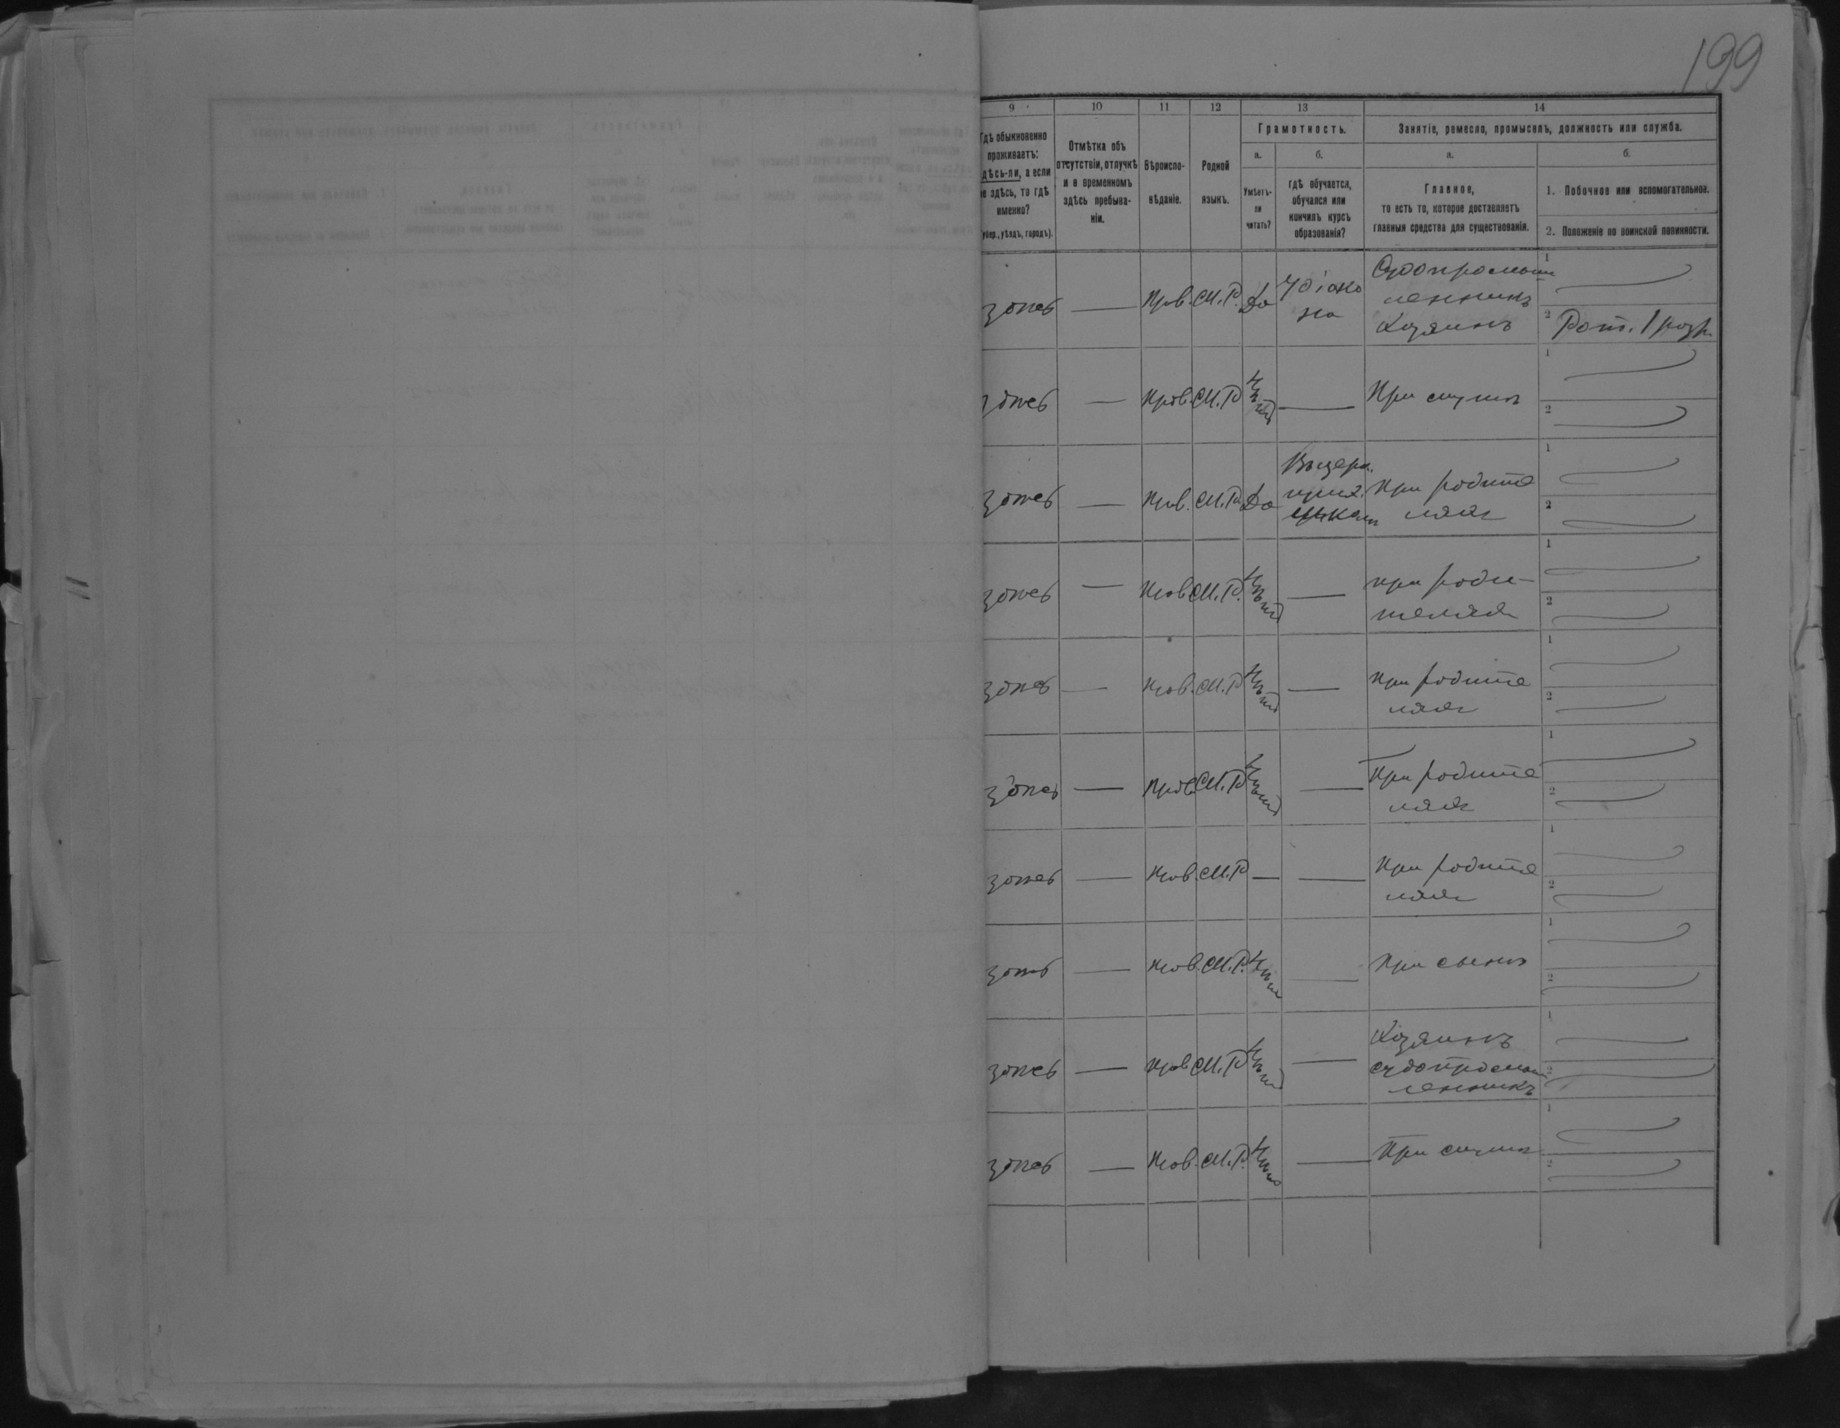 199
9 10 11 12 13 14
Гдѣ обыкновенно
проживаетъ:
здѣсь-ли, а если
не здѣсь, то гдѣ
именно?
(губер., уѣздъ, городъ).
Отмѣтка объ
отсутствіи, отлучкѣ
и о временномъ
здѣсь пребыва-
ніи.
Вѣроиспо-
вѣданіе.
Родной
языкъ.
Грамотность.
а.
Умѣетъ-
ли
читать?
б.
гдѣ обучается,
обучался или
кончилъ курсъ
образованія?
Занятіе, ремесло, промыселъ, должность или служба.
а.
Главное,
то есть то, которое доставляетъ
главныя средства для существованія.
б.
1. Побочное или вспомогательное.
2. Положеніе по воинской повинности.
здѣсь — Прав. М.Р. Да
У діако
на
Хозяинъ
1
2 Рат. 1 разр.
здѣсь — Прав. М.Р. Нѣтъ — При мужѣ
1
2
здѣсь — Прав. М.Р. Да
При родите
ляхъ
1
2
здѣсь — Прав. М.Р. Нѣтъ —
при роди-
теляхъ
1
2
здѣсь — Прав. М.Р. Нѣтъ —
При родите
ляхъ
1
2
здѣсь — Прав. М.Р. Нѣтъ —
При родите
ляхъ
1
2
здѣсь — Прав. М.Р. — —
При родите
ляхъ
1
2
здѣсь — Прав. М.Р. Нѣтъ — При сынѣ
1
2
здѣсь — Прав. М.Р. Нѣтъ —
Хозяинъ
1
2
здѣсь — Прав. М.Р. Нѣтъ — При мужѣ
1
2